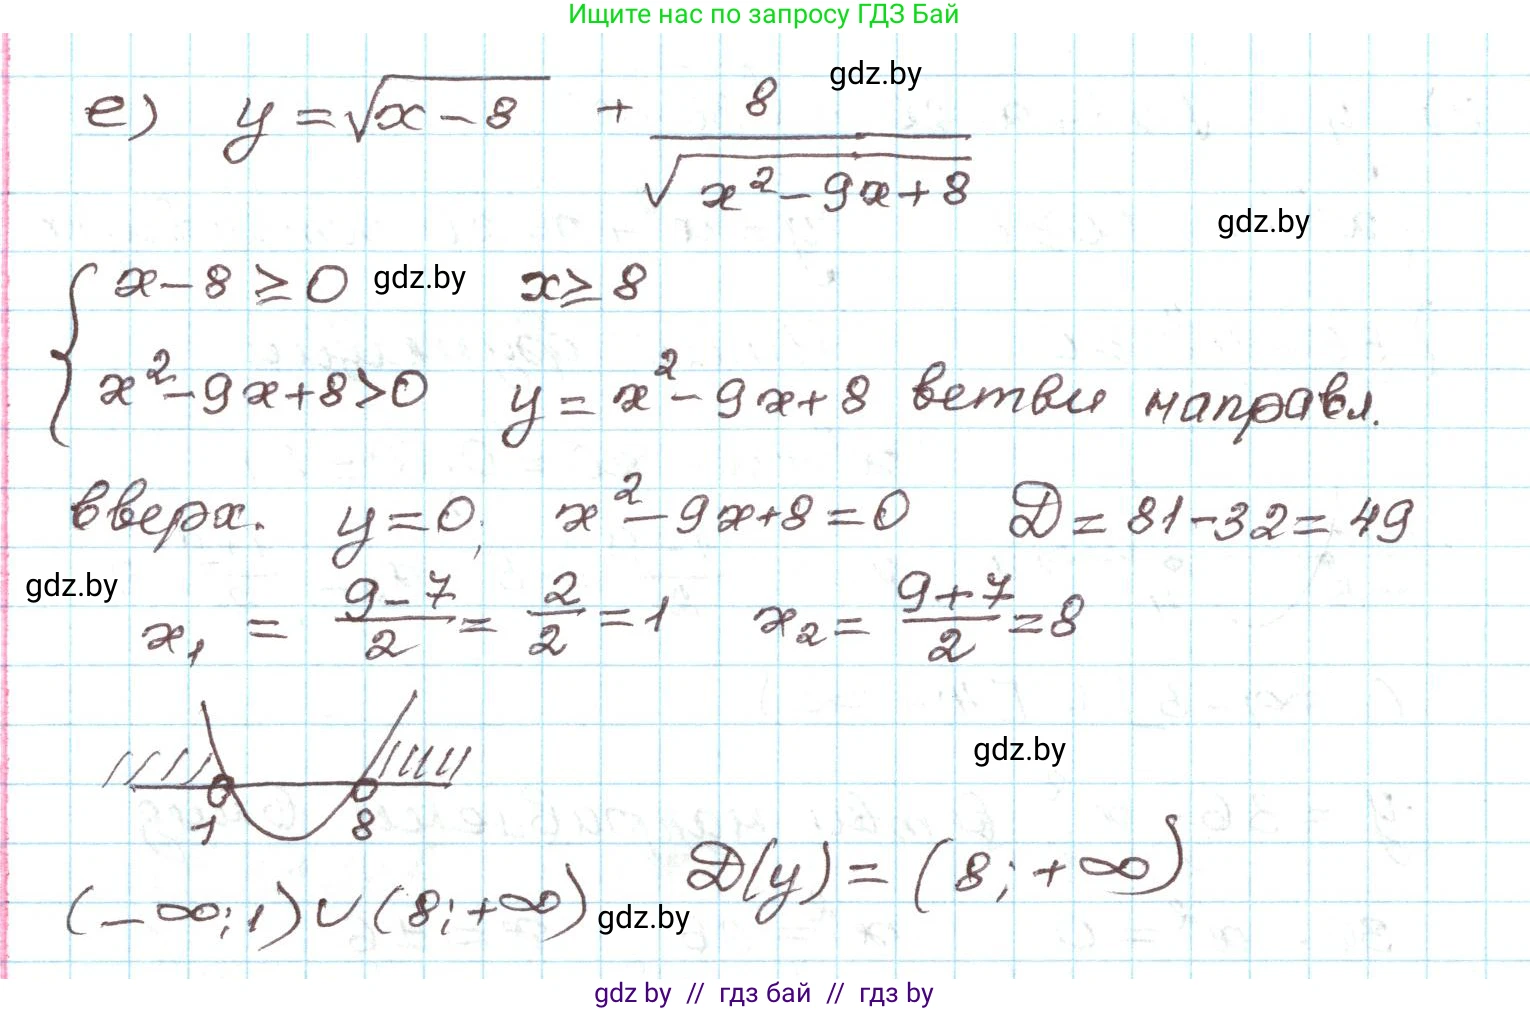 Ищите нас по запросу ГДЗ Бай
gdz.by
е) y = √(x - 8) + 8/√(x² - 9x + 8)
gdz.by
{ x - 8 ≥ 0 gdz.by x ≥ 8
x² - 9x + 8 > 0 y = x² - 9x + 8 ветви направл.
вверх. y = 0; x² - 9x + 8 = 0 D = 81 - 32 = 49
gdz.by
x₁ = (9 - 7)/2 = 2/2 = 1 x₂ = (9 + 7)/2 = 8
gdz.by
1 8
D(y) = (8; +∞)
(-∞; 1) ∪ (8; +∞) gdz.by
gdz by // гдз бай // гдз by